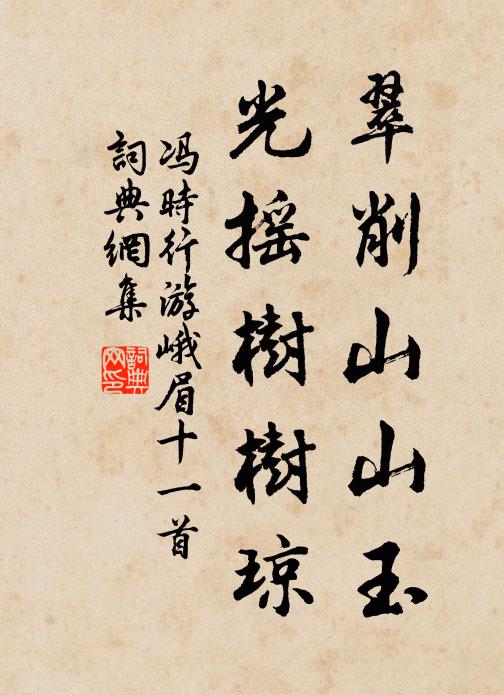 翠削山山玉
光摇樹樹琼
冯時行游峨眉十一首
詞典網集
詞典网印